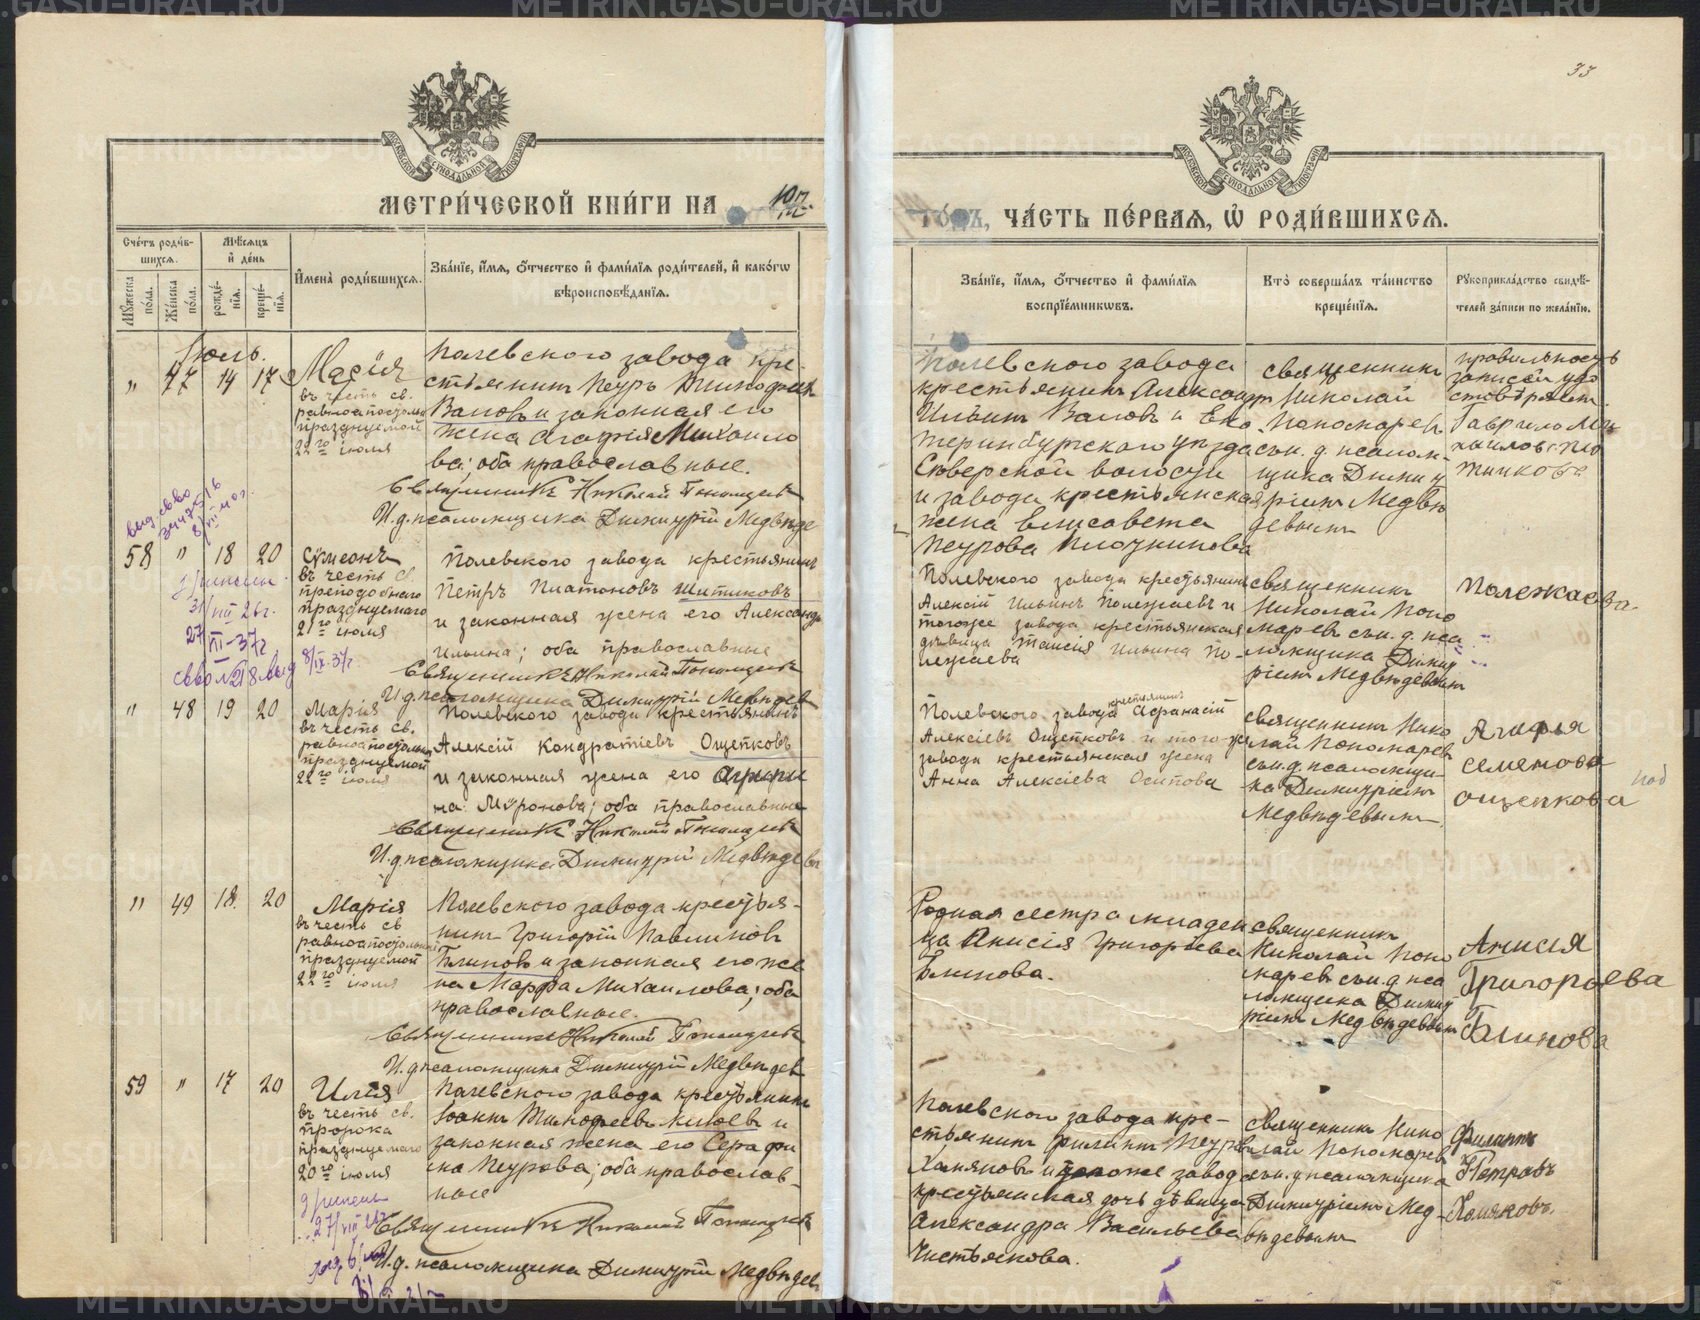 METRIKI.GASU-URAL.RU
33
МОСКОВСКОЙ СѴНОДАЛЬНОЙ ТИПОГРАФІИ
МЕТРИ́ЧЕСКОЙ КНИ́ГИ НА
ГО́ДЪ, ЧА́СТЬ ПЕ́РВАЯ, Ѡ РОДИ́ВШИХСЯ.
Сче́тъ роди́в-
шихся.
Мѣ́сяцъ
и де́нь
Мꙋ́жеска
по́ла.
Же́нска
по́ла.
рожде́-
нїя.
креще́-
нїя.
Имена̀ роди́вшихся.
Зва́нїе, и́мя, о́тчество и фами́лїя роди́телей, и како́гѡ
вѣроисповѣ́данїя.
Зва́нїе, и́мя, о́тчество и фами́лїя
воспрїе́мникѡвъ.
Кто̀ соверша́лъ та́инство
креще́нїя.
Рꙋкоприкла́дство свидѣ́-
телей за́писи по жела́нїю.
Іюль.
" 47 14 17
Марія
въ честь св.
равноапостольн
празднуемой
22го іюля
Полевского завода кре-
стьянинъ Петръ Тимофеев
Валовъ и законная его
жена Агафія Михаило
ва; оба православные.
Священникъ Николай Пономарев
И.д. псаломщика Димитрій Медвѣдев
Полевского завода
крестьянинъ Александр
Ильинъ Валовъ и Ека
теринбургскаго уезда
Сѣверской волости
и завода крестьянская
жена Елисавета
Петрова Плотникова
священникъ
Николай
Пономаревъ
съ и. д. псалом-
щика Димит
ріемъ Медвѣ
девымъ
правильность
записи удо
стовѣряет
Гаврило Ми
хаилов Пло
тников
58 " 18 20
Сѵмеонъ
въ честь св.
преподобнаго
празднуемаго
21го іюля
Полевского завода крестьянинъ
Петръ Платоновъ Шитиковъ
и законная жена его Александра
Ильина; оба православные
Священникъ Николай Пономарев
И.д. псаломщика Димитрій Медвѣдев
Полевского завода крестьянинъ
Алексій Ильинъ Полежаевъ и
тогоже завода крестьянская
дѣвица Таисія Ильина По-
лежаева
священникъ
Николай Поно
маревъ съ и. д. пса
ломщика Димит
ріемъ Медвѣдевымъ
Полежаева
" 48 19 20
Марія
въ честь св.
равноапостольн
празднуемой
22го іюля
Полевского завода крестьянинъ
Алексій Кондратіевъ Ощепковъ
и законная жена его Агриппи
на Мѵронова; оба православные
Священникъ Николай Пономарев
И.д. псаломщика Димитрій Медвѣдевъ
Полевского завода крестьянинъ Афанасій
Алексіевъ Ощепковъ и того же
завода крестьянская жена
Анна Алексіева Осипова
священникъ Нико
лай Пономаревъ
съ и. д. псаломщи-
ка Димитріемъ
Медвѣдевымъ
Агафья
Семенова
Ощепкова
" 49 18. 20
Марія
въ честь св
равноапостольной
празднуемой
22го іюля
Полевского завода крестья-
нинъ Григорій Павлиновъ
Блиновъ и законная его же
на Марфа Михаилова; оба
православные.
Священникъ Николай Пономарев
И.д. псаломщика Димитрій Медвѣдев
Родная сестра младен
ца Анисія Григорьева
Блинова.
священникъ
Николай Поно
маревъ съ и. д. пса
ломщика Димит
ріемъ Медвѣдевымъ
Анисия
Григорьева
Блинова
59 " 17 20
Илія
въ честь св.
пророка
празднуемаго
20го іюля
Полевского завода крестьянинъ
Іоаннъ Тимофеевъ Килевъ и
законная жена его Серафи
ма Петрова; оба православ-
ные
Священникъ Николай Пономарев
И.д. псаломщика Димитрій Медвѣдев
Полевского завода кре-
стьянинъ Филиппъ Петров
Хомяковъ и тогоже завода
крестьянская дочь дѣвица
Александра Васильева
Чистякова.
священникъ Нико
лай Пономаревъ
съ и. д. псаломщика
Димитріемъ Мед-
вѣдевымъ
Филиппъ
Петровъ
Хомяковъ.